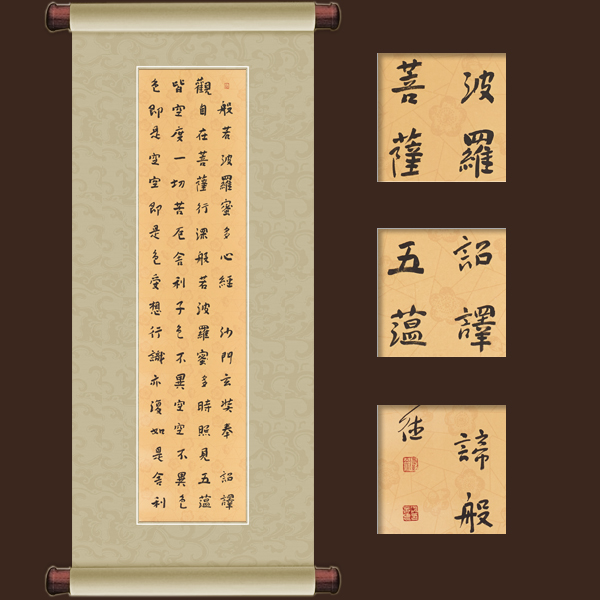 般若波羅蜜多心經 沙門玄奘奉 詔譯
觀自在菩薩行深般若波羅蜜多時照見五蘊
皆空度一切苦厄舍利子色不異空空不異色
色即是空空即是色受想行識亦復如是舍利
波羅
菩薩
詔譯
五蘊
諦般